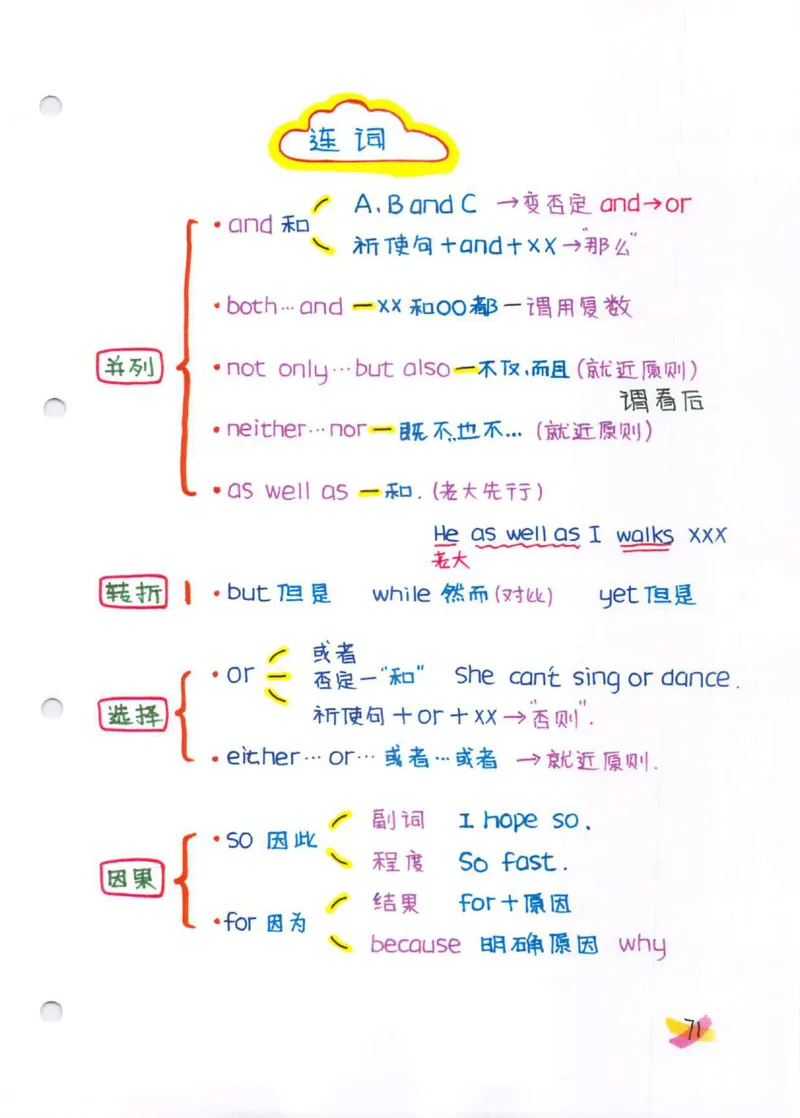 连词
并列
• and 和
A、B and C →变否定 and→or
祈使句+and+xx→"那么"
• both…and —xx 和OO都—谓用复数
• not only…but also —不仅,而且(就近原则)
谓看后
• neither…nor — 既不,也不… (就近原则)
• as well as —和. (老大先行)
He as well as I walks xxx
老大
转折 • but 但是 while 然而(对比) yet 但是
选择
• or
或者
否定—"和" She can't sing or dance.
祈使句+or+xx→"否则".
• either…or… 或者…或者 →就近原则.
因果
• so 因此
副词 I hope so.
程度 So fast.
• for 因为
结果 for+原因
because 明确原因 why
71